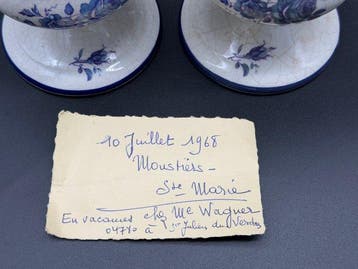 10 Juillet 1968
Moustiers -
Ste Marie
En vacances chez Me Wagner
04780 à St Julien du Verdon